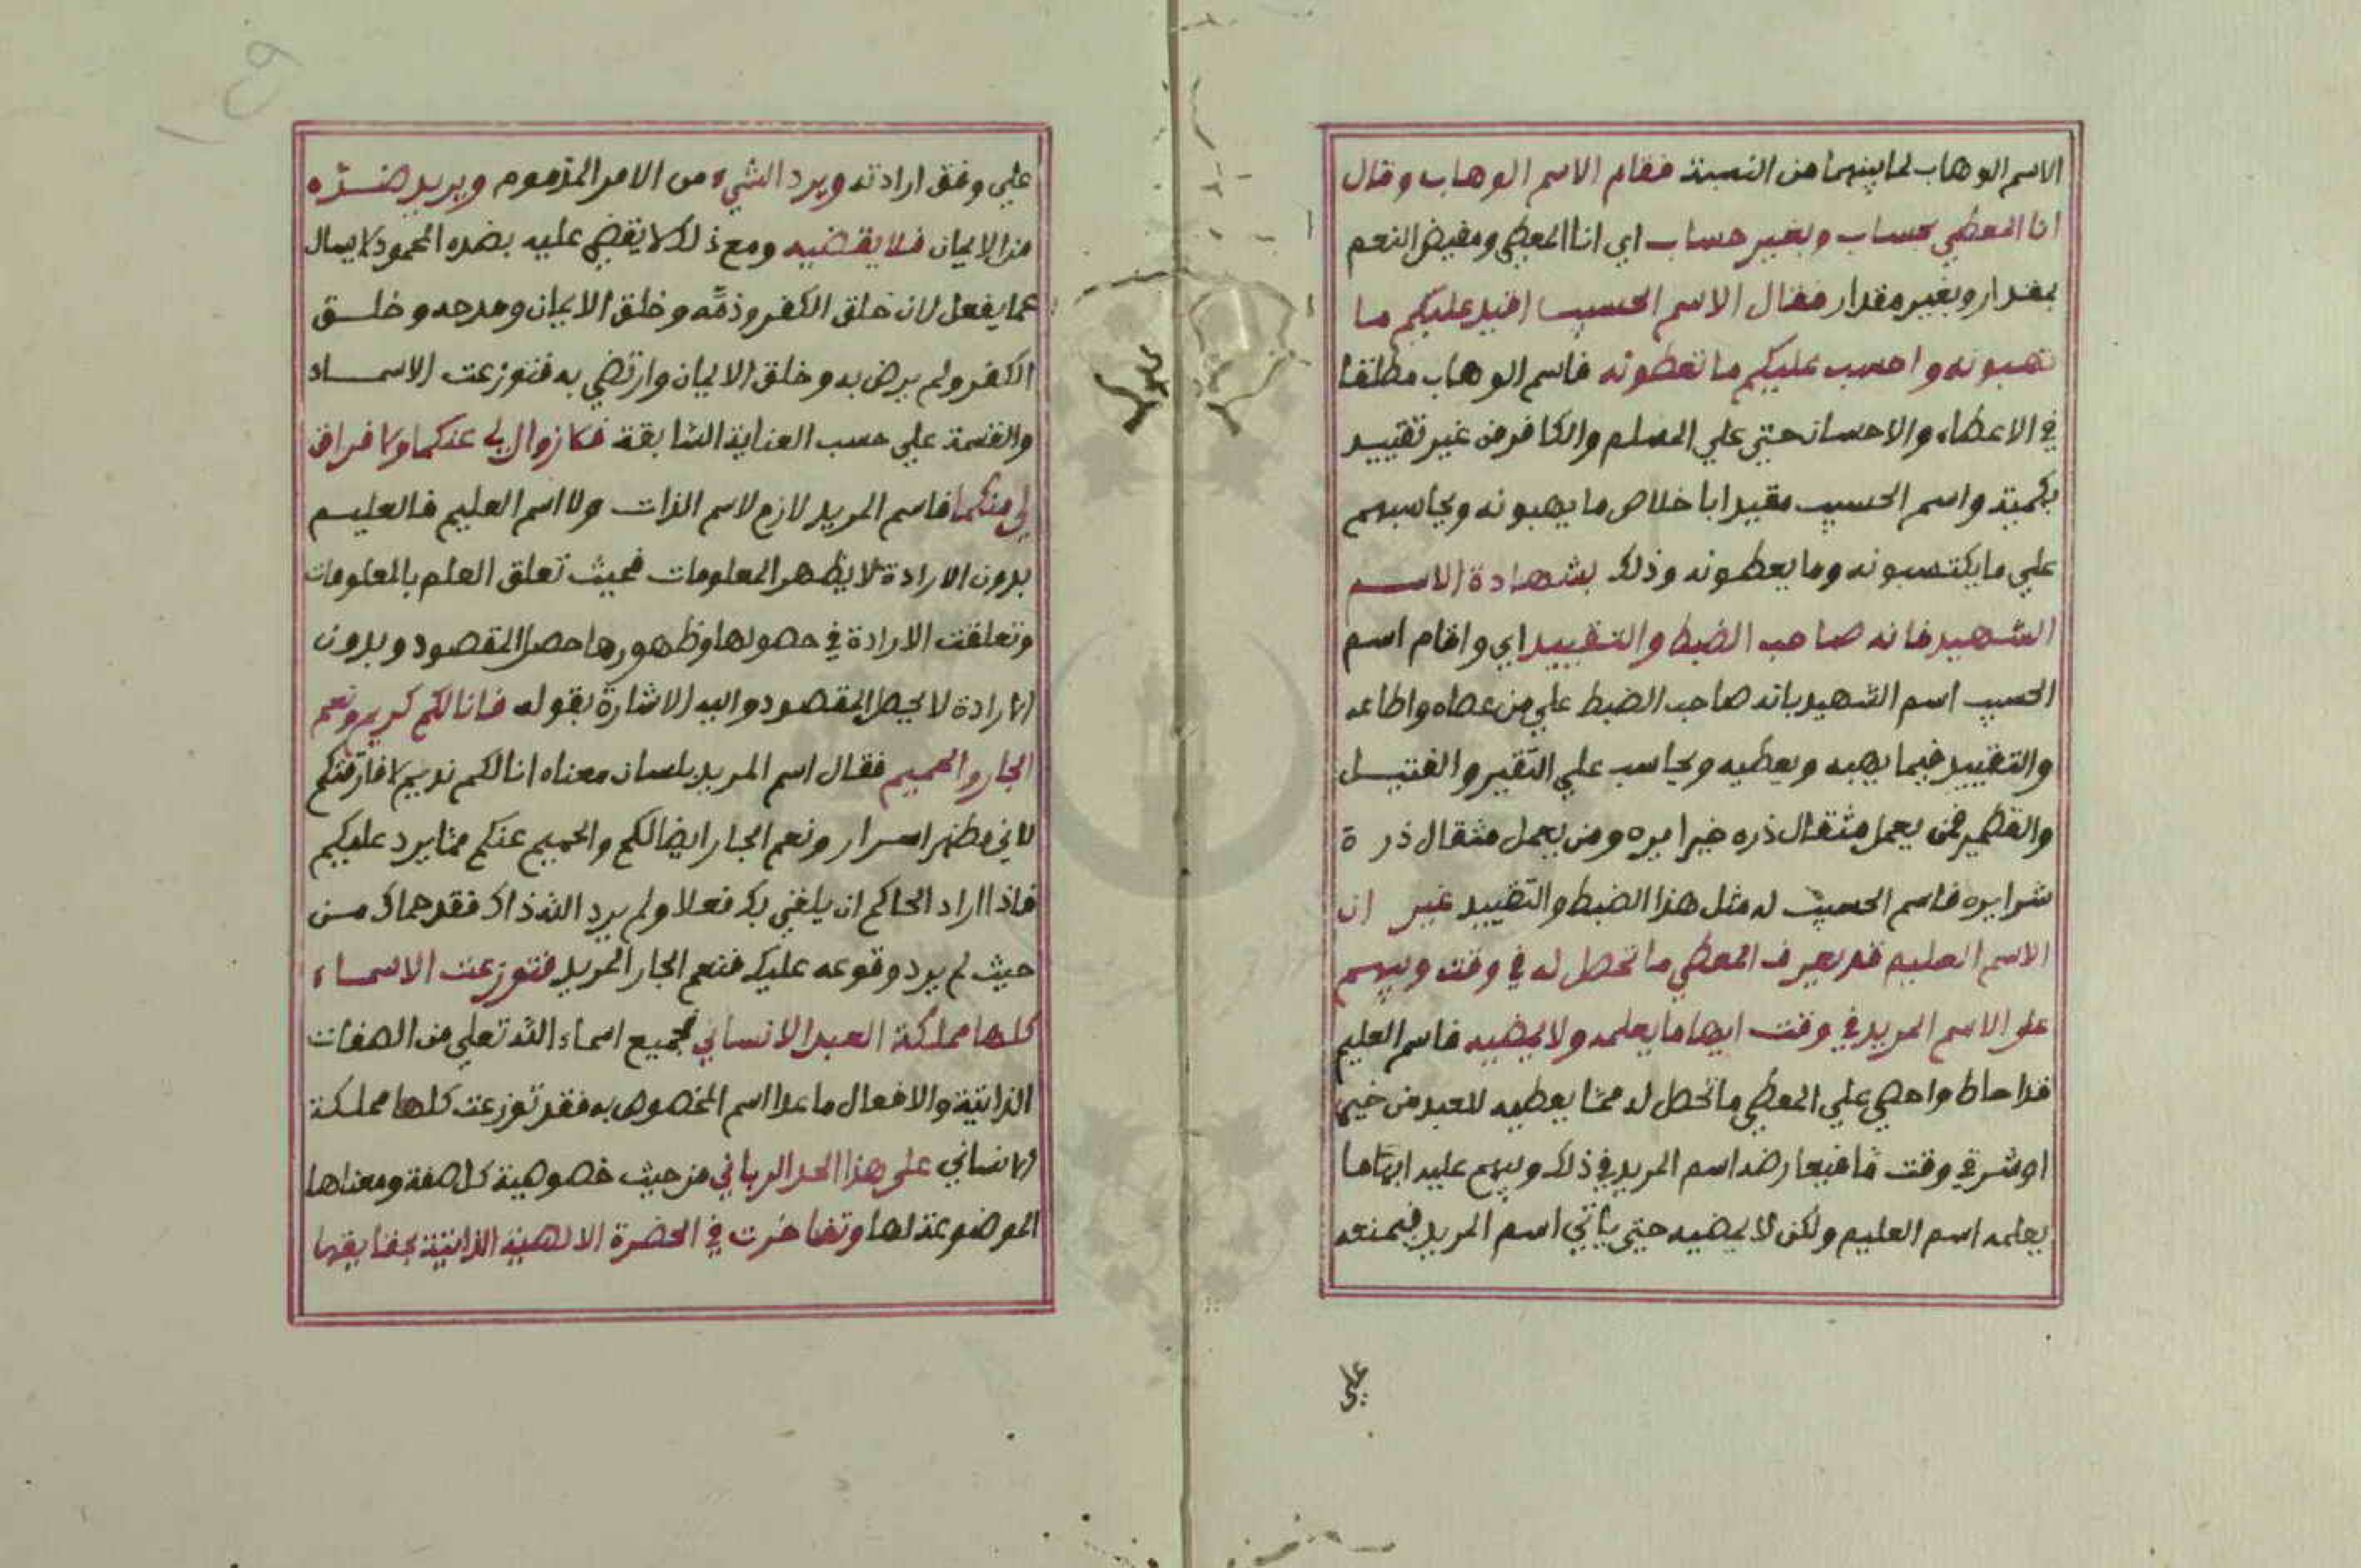 الاسم الوهاب لما بينهما من النسبة فقام الاسم الوهاب وقال
انا المعطي بحساب وبغير حساب اي انا المعطي ومفيض النعم
بمقدار وبغير مقدار فقال الاسم الحسيب اقيد عليكم ما
تهبونه واحسب عليكم ما تعطونه فاسم الوهاب مطلقا
في الاعطاء والاحسان حتي علي المسلم والكافر من غير تقييد
بكمية واسم الحسيب مقيدا باخلاص ما يهبونه ويحاسبهم
علي ما يكتسبونه وما يعطونه وذلك بشهادة الاسم
الشهيد فانه صاحب الضبط والتقييد اي واقام اسم
الحسيب اسم الشهيد بانه صاحب الضبط علي من عصاه واطاعه
والتقييد فيما يهبه ويعطيه ويحاسب علي النقير والفتيل
والقطمير فمن يعمل مثقال ذره خيرا يره ومن يعمل مثقال ذرة
شرا يره فاسم الحسيب له مثل هذا الضبط والتقييد غير ان
الاسم العليم قد يعرف المعطي ما تحصل له في وقت ويبهم
علي الاسم المريد في وقت ايهاما يعلمه ولا يمضيه فاسم العليم
قد احاط واحصي علي المعطي ما تحصل له مما يعطيه للعبد من خير
او شر في وقت ما فيعارضه اسم المريد في ذلك ويبهم عليه ابهاما
يعلمه اسم العليم ولكن لا يمضيه حتي ياتي اسم المريد فيمنعه
علي
علي وفق ارادته ويرد الشيء من الامر المذموم ويريد ضده
من الايمان فلا يقضيه ومع ذلك لا يقضي عليه بضده المحمود لا يسال
عما يفعل لان خلق الكفر وذمه وخلق الايمان ومدحه وخلق
الكفر ولم يرض به وخلق الايمان وارتضي به فتوزعت الاسماء
والقسمة علي حسب العناية السابقة فلا زوال لي عنكما ولا فراق
لي منكما فاسم المريد لازم لاسم الذات ولا اسم العليم فالعليم
بدون الارادة لا يظهر المعلومات فحيث تعلق العلم بالمعلومات
وتعلقت الارادة في حصولها وظهورها حصل المقصود وبدون
الارادة لا يحصل المقصود واليه الاشارة بقوله فانا لكم كريم ونعم
الجار والحميم فقال اسم المريد بلسان معناه انا لكم نديم لا فارقتكم
لاني مظهر اسرار ونعم الجار ايضا لكم والحميم عنكم مما يرد عليكم
فاذا اراد الحاكم ان يلغي بك فعلا ولم يرد الله ذاك فقد حماك من
حيث لم يرد وقوعه عليك فنعم الجار المريد فتوزعت الاسماء
كلها مملكة العبد الانساني فجميع اسماء الله تعلي من الصفات
الذاتية والافعال ما عدا اسم المخصوص به فقد توزعت كلها مملكة
الانساني علي هذا الحد الرباني من حيث خصوصية كل صفة ومعناها
الموضوعة لها وتفاخرت في الحضرة الالهية الذاتية بحقايقها